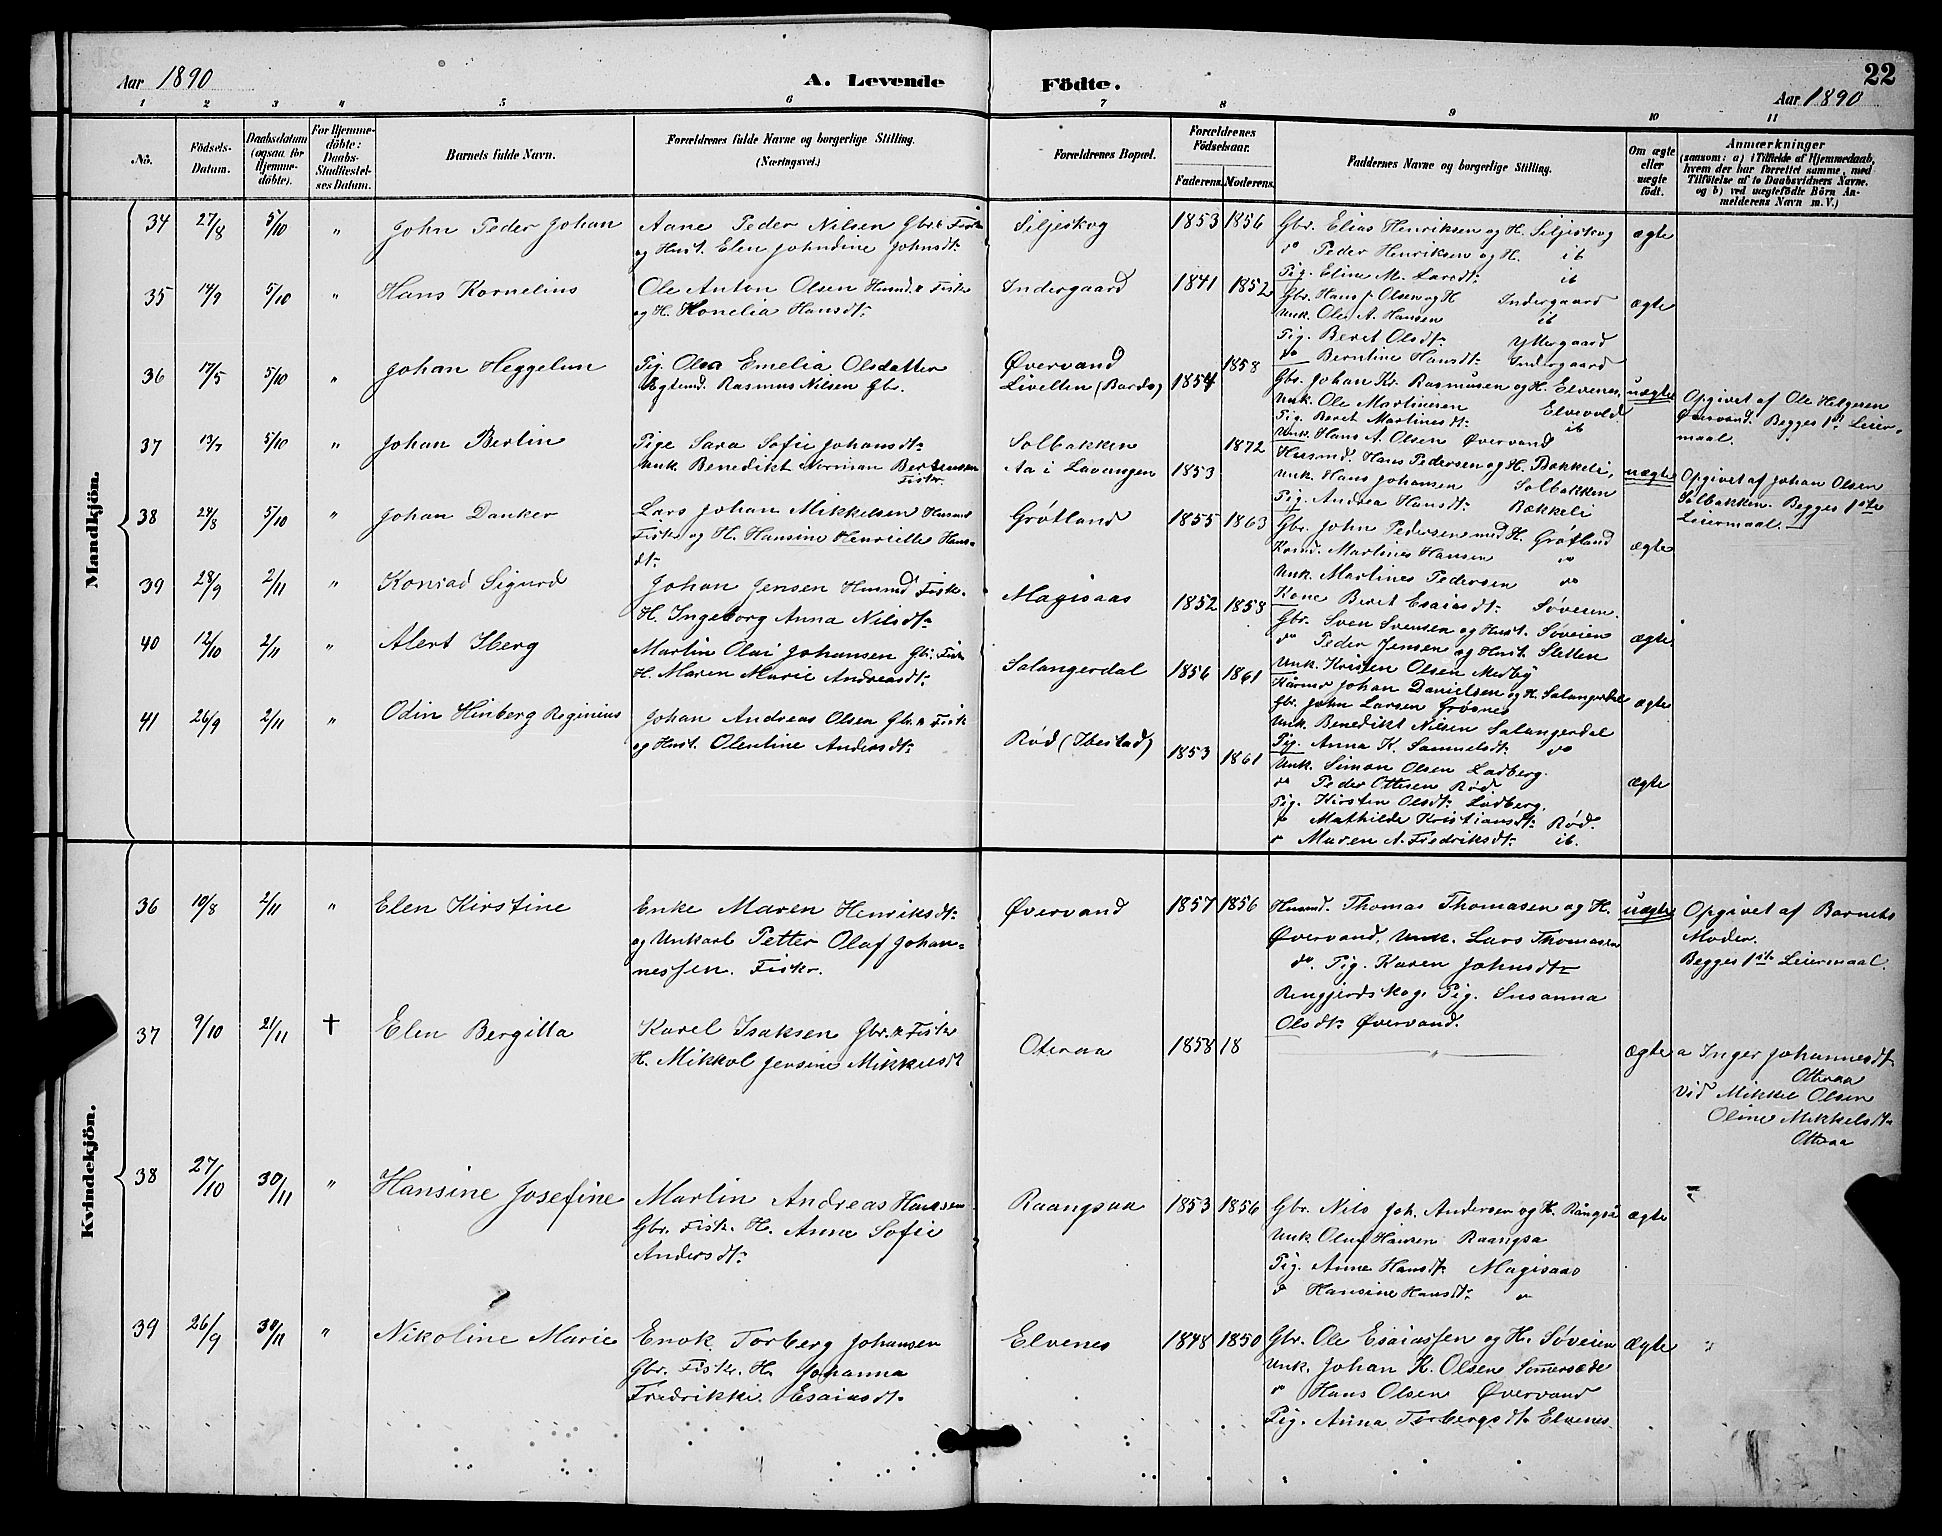 Aar 1890
A. Levende Födte.
22
Aar 1890
1 2 3 4 5 6 7 8 9 10 11
No.
Födsels-Datum.
Daabsdatum (ogsaa for Hjemme-döbte).
For Hjemme-döbte: Daabs-Stadfæstel-ses Datum.
Barnets fulde Navn.
Forældrenes fulde Navne og borgerlige Stilling. (Næringsvei.)
Forældrenes Bopæl.
Forældrenes Födselsaar.
Faderens. Moderens.
Faddernes Navne og borgerlige Stilling.
Om ægte eller uægte födt.
Anmærkninger
(saasom: a) i Tilfælde af Hjemmedaab, hvem der har forrettet samme, med Tilföielse af to Daabsvidners Navne. og b) ved uægtefödte Börn An-melderens Navn m. V.)
Mandkjön.
34 27/8 5/10 " John Peder Johan
Aane Peder Nilsen Gbr. & Fisker
og Hust. Elen Johndine Johnsdt.
Siljeskog 1853 1856
Gbr. Elias Henriksen og H. Siljeskog
do Peder Henriksen og H. ib
Pig. Eline M. Larsdt. ib
ægte
35 14/9 5/10 " Hans Kornelius
Ole Anton Olsen Husmd. & Fisker
og H. Konelia Hansdt.
Indergaard 1841 1852
Gbr. Hans J. Olsen og H Indergaard
Unk. Ole A. Hansen ib
Pig. Beret Olsdt. Yttergaard
do Berntine Hansdt. Indergaard
ægte
36 17/5 5/10 " Johan Heggelun
Pig. Olea Emelia Olsdatter
Ægtemd. Rasmus Nilsen Gbr.
Øvervand
Livellen (Bardo) 1854 1858
Gbr. Johan Kr. Rasmusen og H. Elvenes,
Unk. Ole Martinisen Elvevold
Pig. Beret Martinesdt. ib
Unk. Hans A. Olsen Øvervand
uægte
Opgivet af Ole Helgesen
Øvervand. Begges 1st Leier-
maal.
37 13/7 5/10 " Johan Berlin
Pige Sara Sofie Johansdt.
Unk. Benedikt Norman Bertensen
Fisker.
Solbakken
Aa i Lavangen 1853 1872
Husmd. Hans Pedersen og H. Bakkeli,
Unk. Hans Johansen Solbakken
Pig. Andrea Hansdt. Bakkeli
uægte
Opgivet af Johan Olsen
Solbakken. Begges 1ste
Leiermaal.
38 29/8 5/10 " Johan Danker
Lars Johan Mikkelsen Husmd
Fisker og H. Hansine Henriette Hans-
dt.
Grøtland 1855 1863
Gbr. John Pedersen med H. Grøtland
Kond. Martines Hansen do
Unk. Martines Pedersen do
Kone Beret Esaiasdt. Søveien.
ægte
39 28/9 2/11 " Konrad Sigurd
Johan Jensen Husmd Fisk.
H. Ingeborg Anna Nilsdt.
Magisaas 1852 1858
Gbr. Sven Svensen og Hust. Søveien
do Peder Jensen og Hust Sletten
Unk. Kristen Olsen Medby
ægte.
40 12/10 2/11 " Alert Iberg
Martin Olai Johansen Gbr. Fisker
H. Maren Marie Andreasdt.
Salangerdal 1856 1861
Johan Danielsen og H. Salangerdal
Gbr. John Larsen Grøsnes
Unk. Benedikt Nilsen Salangerdal
Pig. Anna K. Samuelsdt. do
ægte
41 26/9 2/11 " Odin Hinberg Reginius
Johan Andreas Olsen Gbr. & Fisk
og Hust. Olentine Andersdt.
Rød (Ibestad) 1853 1861
Unk. Simon Olsen Ladberg.
do Peder Ottesen Rød
Pig. Kirsten Olsdt. Ladberg.
do Mathilde Kristiansdt. Rød.
do Maren A. Fredriksdt. ib.
ægte
Kvindekjön.
36 10/8 2/11 " Elen Kirstine
Enke Maren Henriksdt.
og Unkarl Petter Olaf Johan-
nessen. Fisker.
Øvervand 1857 1856
Husmd. Thomas Thomasen og H.
Øvervand, Unk. Lars Thomasen
do. Pig. Karen Johnsdt
Rengjerdskog. Pig. Susanna
Olsdt. Øvervand.
uægte
Opgivet af Barnets
Moder.
Begges 1ste Leiermaal.
37 9/10 21/11 † Elen Bergitta
Karel Isaksen Gbr. & Fisker
H. Mikkol Jensine Mikkelsdt
Oteraa 1858 18
"
ægte
a Inger Johannesdt.
Otteraa
Vid Mikkel Olsen
Oline Mikkelsdt.
Otteraa
38 27/10 30/11 " Hansine Josefine
Martin Andreas Hansen
Gbr. Fisk. H. Anne Sofie
Andersdt.
Raangsaa 1853 1856
Gbr. Nils Joh. Andersen og H. Rångså
Unk. Oluf Hansen Raangsa
Pig. Anne Hansdt. Magisaas
do Hansine Hansdt. do
ægte
39 26/9 30/11 " Nikoline Marie
Enok Torberg Johansen
Gbr. Fisker. H. Johanna
Fredrikke Esaiasdt.
Elvenes 1848 1850
Gbr. Ole Esaiassen og H. Søveien
Unk. Johan K. Olsen Somersæde
do Hans Olsen Øvervand
Pig. Anna Torbergsdt. Elvenes.
ægte "